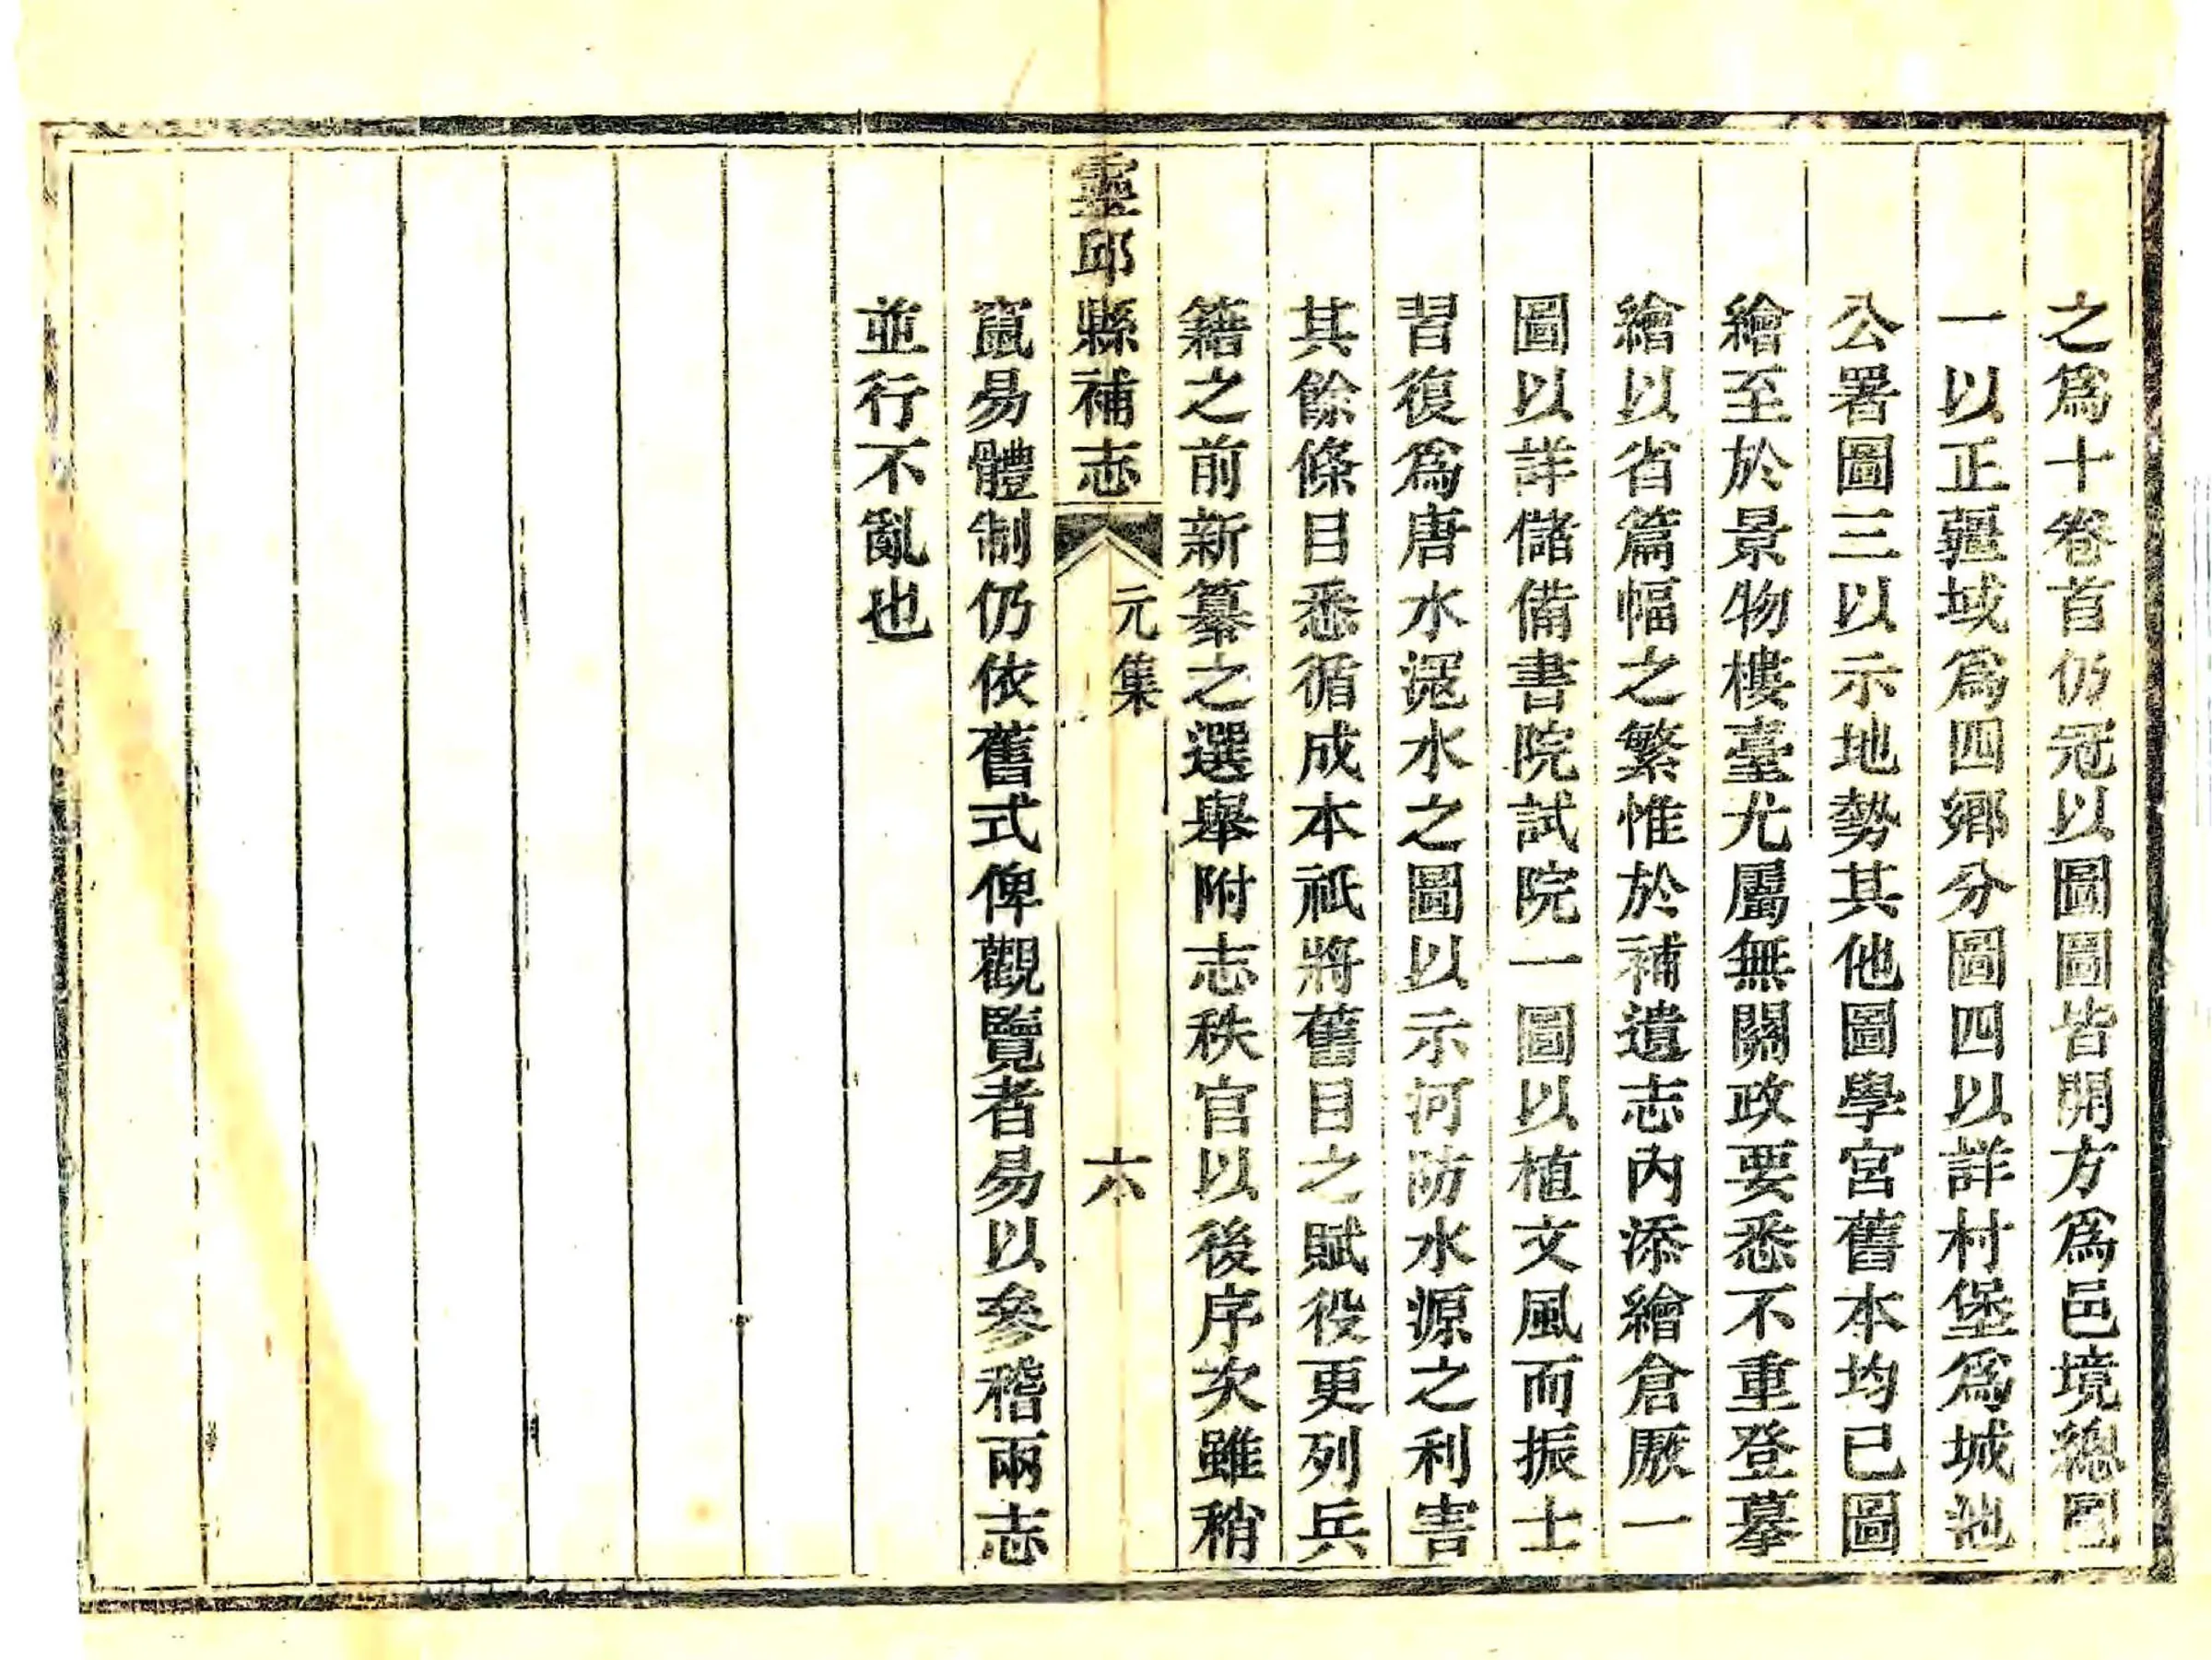 之爲十卷首仍冠以圖圖皆開方爲邑境總圖
一以正疆域爲四鄉分圖四以詳村堡爲城池
公署圖三以示地勢其他圖學宮舊本均已圖
繪至於景物樓臺尤屬無關政要悉不重登摹
繪以省篇幅之繁惟於補遺志內添繪倉厫一
圖以詳儲備書院試院一圖以植文風而振士
習復爲唐水滱水之圖以示河防水源之利害
其餘條目悉循成本祇將舊目之賦役更列兵
籍之前新纂之選舉附志秩官以後序次雖稍
靈邱縣補志
元集
六
竄易體制仍依舊式俾觀覽者易以參稽兩志
並行不亂也